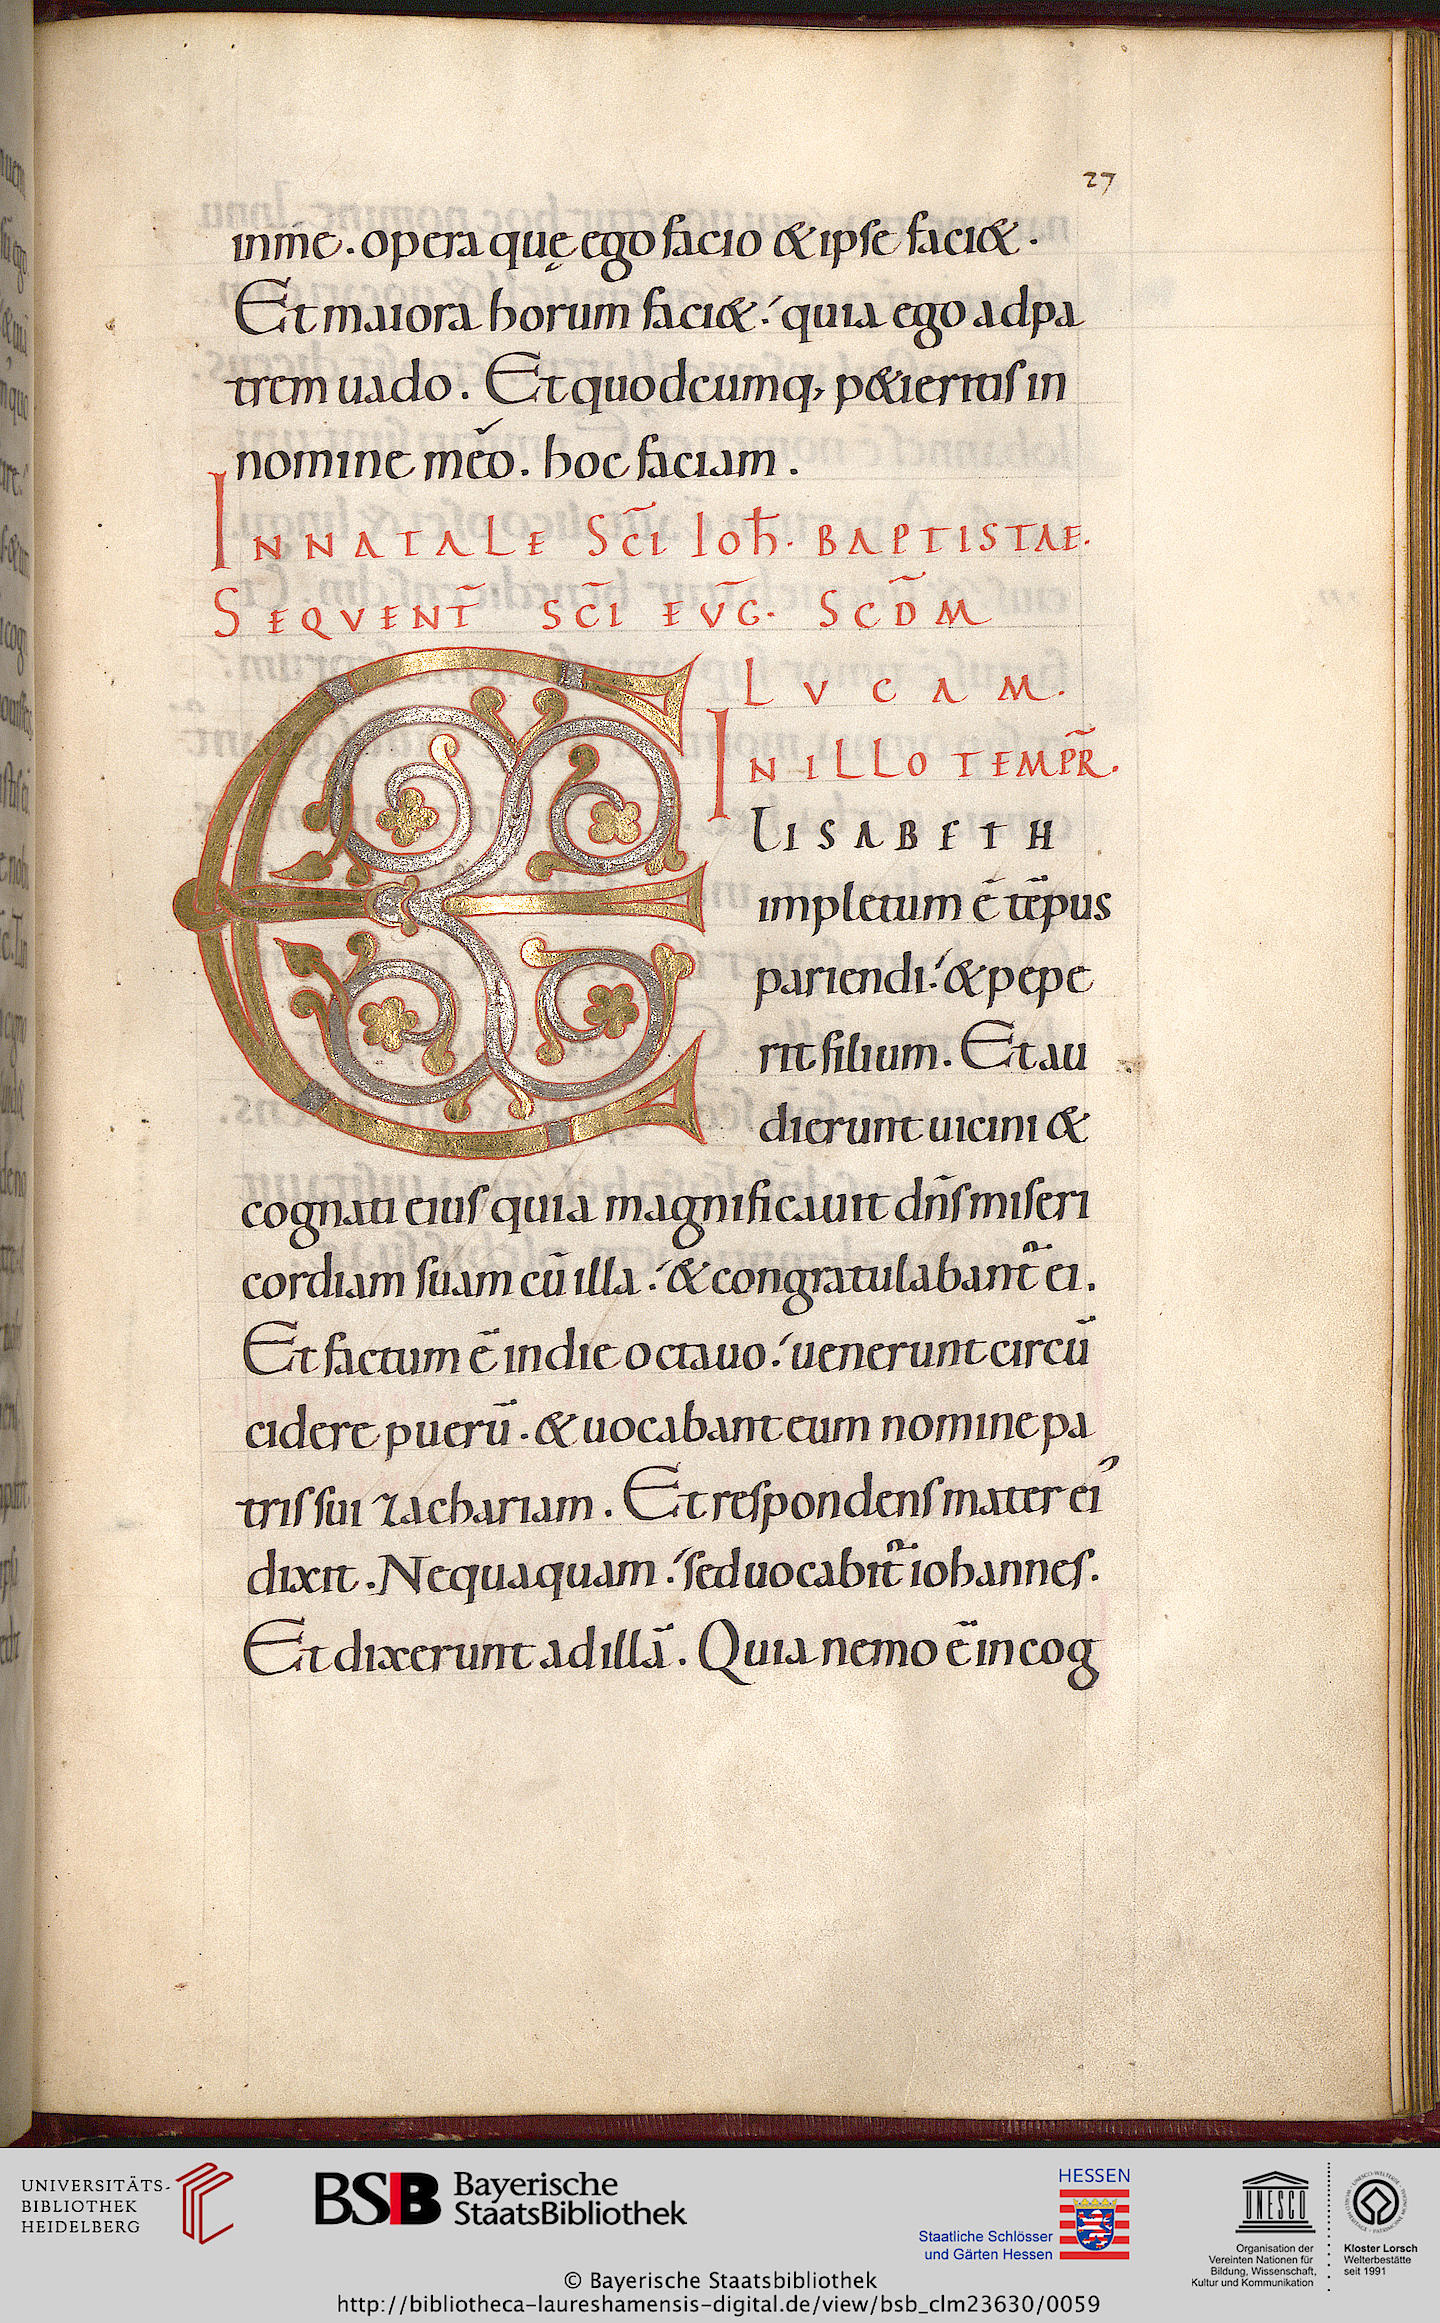 27
inme. opera quę ego facio & ipse faci&.
Et maiora horum faci&. quia ego ad pa
trem uado. Et quodcumq; p&ieritis in
nomine meo. hoc faciam.
IN NATALE SC̄I IOH̄. BAPTISTAE.
SEQVENT̄ SC̄I EVḠ. SCD̄M
LVCAM.
IN ILLO TEMPR̄.
ELISABETH
impletum ē tēpus
pariendi. & pepe
rit filium. Et au
dierunt uicini &
cognati eius quia magnificauit dn̄s miseri
cordiam suam cū illa. & congratulabant̄ ei.
Et factum ē in die octauo. uenerunt circū
cidere puerū. & uocabant eum nomine pa
tris sui zachariam. Et respondens mater ei'
dixit. Nequaquam. sed uocabit̄ iohannes.
Et dixerunt ad illā. Quia nemo ē in cog
UNIVERSITÄTS-
BIBLIOTHEK
HEIDELBERG
BSB Bayerische
StaatsBibliothek
HESSEN
Staatliche Schlösser
und Gärten Hessen
UNESCO
Organisation der
Vereinten Nationen für
Bildung, Wissenschaft,
Kultur und Kommunikation
Kloster Lorsch
Welterbestätte
seit 1991
© Bayerische Staatsbibliothek
http://bibliotheca-laureshamensis-digital.de/view/bsb_clm23630/0059